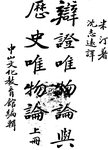 米汀著
沈志遠譯
辯證唯物論與
歷史唯物論
上冊
中山文化教育館編輯